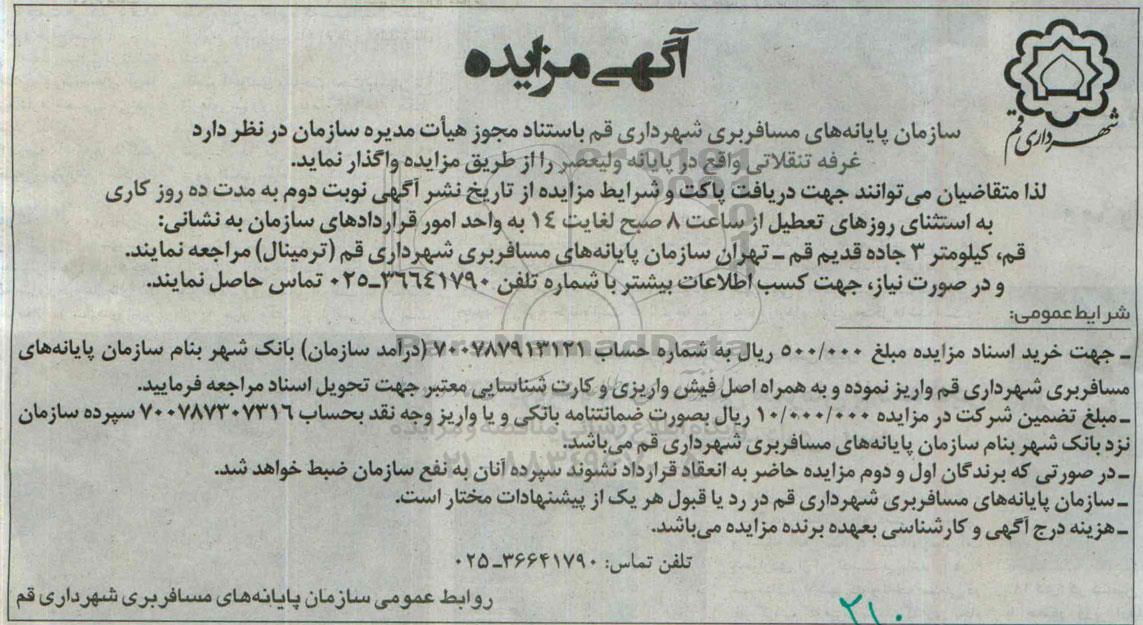 آگهی مزایده
شهرداری قم
سازمان پایانه‌های مسافربری شهرداری قم باستناد مجوز هیأت مدیره سازمان در نظر دارد
غرفه تنقلاتی واقع در پایانه ولیعصر را از طریق مزایده واگذار نماید.
لذا متقاضیان می‌توانند جهت دریافت پاکت و شرایط مزایده از تاریخ نشر آگهی نوبت دوم به مدت ده روز کاری
به استثنای روزهای تعطیل از ساعت ۸ صبح لغایت ۱۴ به واحد امور قراردادهای سازمان به نشانی:
قم، کیلومتر ۳ جاده قدیم قم ـ تهران سازمان پایانه‌های مسافربری شهرداری قم (ترمینال) مراجعه نمایند.
و در صورت نیاز، جهت کسب اطلاعات بیشتر با شماره تلفن ۳۶۶۴۱۷۹۰ـ۰۲۵ تماس حاصل نمایند.
شرایط عمومی:
ـ جهت خرید اسناد مزایده مبلغ ۵۰۰/۰۰۰ ریال به شماره حساب ۷۰۰۷۸۷۹۱۳۱۲۱ (درآمد سازمان) بانک شهر بنام سازمان پایانه‌های
مسافربری شهرداری قم واریز نموده و به همراه اصل فیش واریزی و کارت شناسایی معتبر جهت تحویل اسناد مراجعه فرمایید.
ـ مبلغ تضمین شرکت در مزایده ۱۰/۰۰۰/۰۰۰ ریال بصورت ضمانتنامه بانکی و یا واریز وجه نقد بحساب ۷۰۰۷۸۷۳۰۷۳۱۶ سپرده سازمان
نزد بانک شهر بنام سازمان پایانه‌های مسافربری شهرداری قم می‌باشد.
ـ در صورتی که برندگان اول و دوم مزایده حاضر به انعقاد قرارداد نشوند سپرده آنان به نفع سازمان ضبط خواهد شد.
ـ سازمان پایانه‌های مسافربری شهرداری قم در رد یا قبول هر یک از پیشنهادات مختار است.
ـ هزینه درج آگهی و کارشناسی بعهده برنده مزایده می‌باشد.
تلفن تماس: ۳۶۶۴۱۷۹۰ـ۰۲۵
روابط عمومی سازمان پایانه‌های مسافربری شهرداری قم
۲۱۰
ParsNamadData